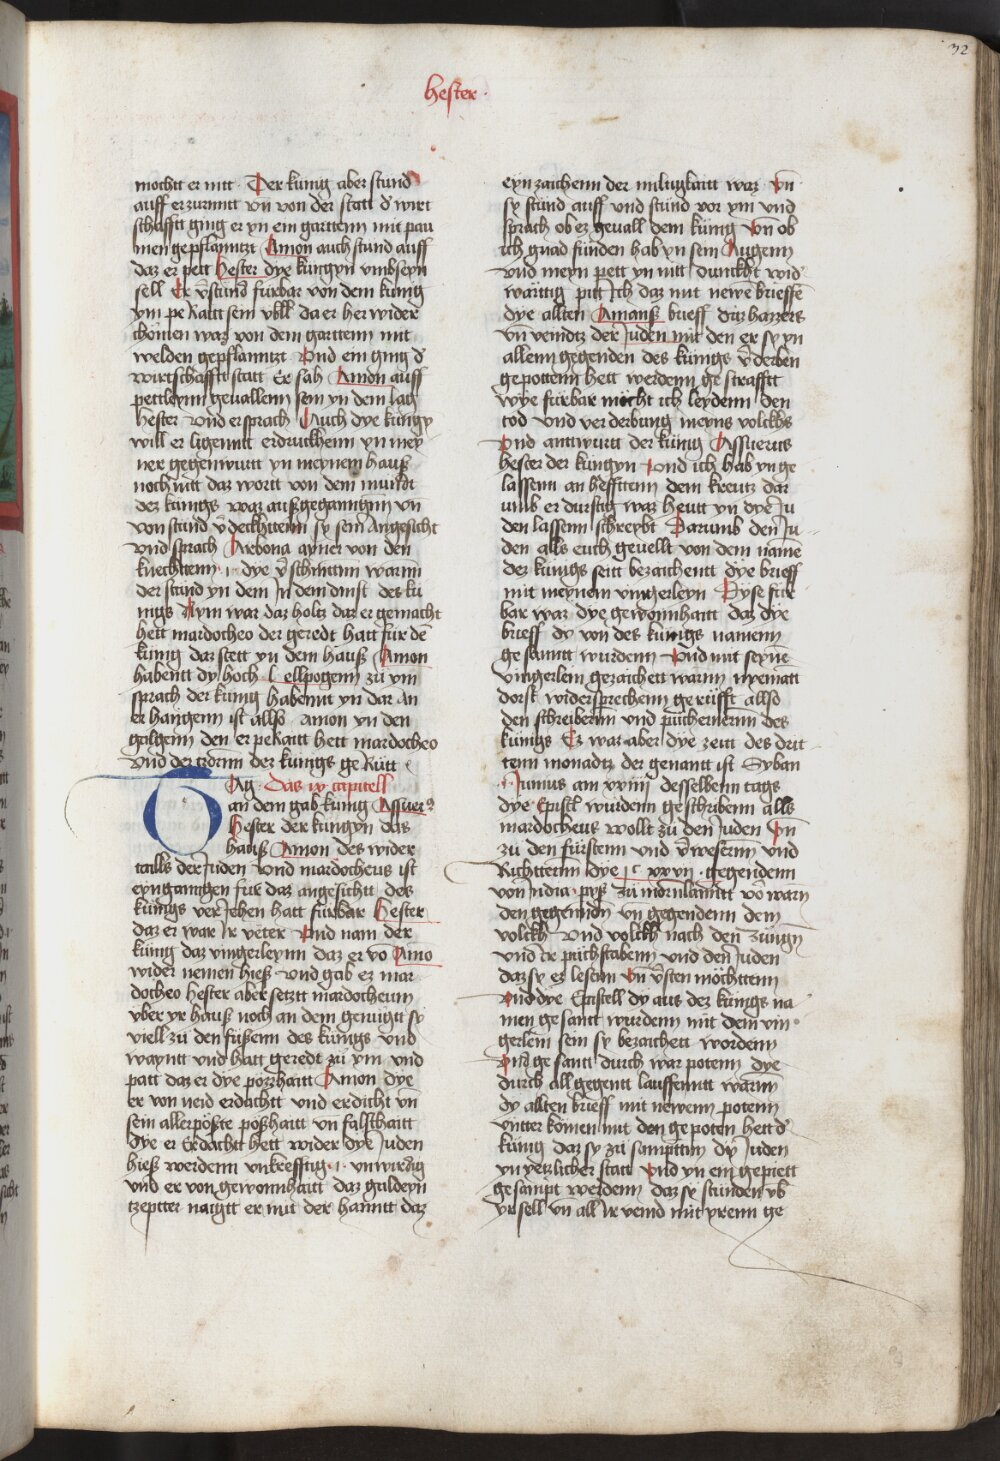 32
hester
mochtt er nitt Der kunig aber stund
auff erzurnntt vn̄ von der statt d' wirt
schafftt ging er yn ein garttenn mit pau
men gepflanntzt Amon auch stund auff
daz er pett hester dye kungyn vmb seyn
sell Er v̄stund furbar von dem kunig
ym peraitt sein vbll da er her wider
chomen waz von dem garttenn mit
welden gepflanntzt Vnd ein ging d'
wirtschafftt statt Er sah Amon auff
pettleynn geuallenn sein yn dem lag
hester vnd er sprach Auch dye kungy
will er ligenntt erdruckhenn yn mey
ner gegenwurtt yn meynem hauß
noch nitt daz wortt von dem mundt
dez kunigs waz außgegangenn vn̄
von stund v̄deckhttenn sy sein angesicht
vnd sprach Arbona ayner von den
knechttenn .i. dye v̄schnittin warnn
der stund yn dem in dem dinst des ku
nigs Nym war daz holtz daz er gemacht
hett mardocheo der geredt hatt fur dē
kunig daz stett yn dem hauß Amon
habentt dy hoch l ellpogenn zu ym
sprach der kunig habenntt yn dar an
er hangenn ist allso amon yn den
galgenn den er peraitt hett mardocheo
vnd der zorenn der kunigs ge Rutt
TAg Das ix capitell
an dem gab kunig Assuer9
hester der kungyn das
hauß Amon des wider
taills der Juden vnd mardocheus ist
eyngangen fur daz angesichtt des
kunigs verjehen hatt furbar hester
daz er war Ir veter Vnd nam der
kunig daz vingerleynn daz er vō Amō
wider nemen hieß vnd gab ez mar
docheo hester aber setztt mardocheum
vber yr hauß noch an dem genugtt sy
viell zu den fußenn des kunigs vnd
wayntt vnd hatt geredt zu ym vnd
patt daz er dye pozzhaitt Amon dye
er von neid erdachtt vnd erdicht vn̄
sein allerpößte pößhaitt vn̄ falschaitt
dye er Erdachtt hett wider dye Juden
hieß werdenn vnkrefftig .i. vnwirdig
vnd er von gewonnhaitt daz guldeyn
tzeptter naigtt er mit der hanntt daz
eyn zaichenn der miltigkaitt war Vn̄
sy stund auff vnd stund vor ym vnd
sprach ob ez geuall dem kunig Von ob
ich gnad funden hab yn sein Augenn
vnd meyn pett yn nitt dunckht wid'
warttig pitt Ich daz mit newē brieffē
dye allten Amanß brieff diz hazzers
vn̄ veindtz der Juden mit den er sy yn
allenn gegenden des kunigs v̄derben
gepottenn hett werdenn ge strafftt
wye furbar möcht ich leydenn den
tod vnd verderbung meyns volckhs
Vnd antwurtt der kunig Assuerus
hester der kungyn Vnd ich hab yn ge
lassenn an hefftenn dem kreutz dar
umb er durstig waz heutt yn dye Ju
den lassenn schreybt Darumb den Ju
den alls euch geuellt von dem namē
dez kunigs seitt bezaichentt dye brieff
mit meynem vingerleyn Dyse fur
bar war dye gewonnhaitt daz dye
brieff dy von des kunigs namenn
ge santtt wurdenn Vnd mit seynē
vingerlein gezaichett warnn nyematt
dorst widersprechenn gerufft allso
den schreibernn vnd puchernernn des
kunigs Ez war aber dye zeitt des drit
tenn monadtz der genantt ist Syban
.i. Junius am xxiiij desselbenn tags
dye Epistl wurdenn geschribenn alls
mardocheus wollt zu den Juden Vn̄
zu den furstenn vnd v̄wesernn vnd
Richttern dye j c xxvij gegendenn
von Jndia pyß zu mornlanntt vō warn
den gegennden vn gegendenn dem
volckh vnd volckh nach den zungn
vnd Ir puchstabenn vnd den Juden
daz sy ez lesenn Vn̄ v̄sten möchttenn
Vnd dye Epistell dy aus dez kunigs na
men ge santt wurdenn mit dem vin
gerlein sein sy bezaichett wordenn
Vnd ge santt durch war potenn dye
durch all gegentt lauffenntt warnn
dy allten brieff mit newenn potenn
vntter komen mit den ge poten hett d'
kunig daz sy zu sampttin dy Juden
yn yetzlicher statt Vnd yn ein gepiett
gesampt werdenn daz sy stunden vb
yr sell vn̄ all Ir veind mit yrenn ge